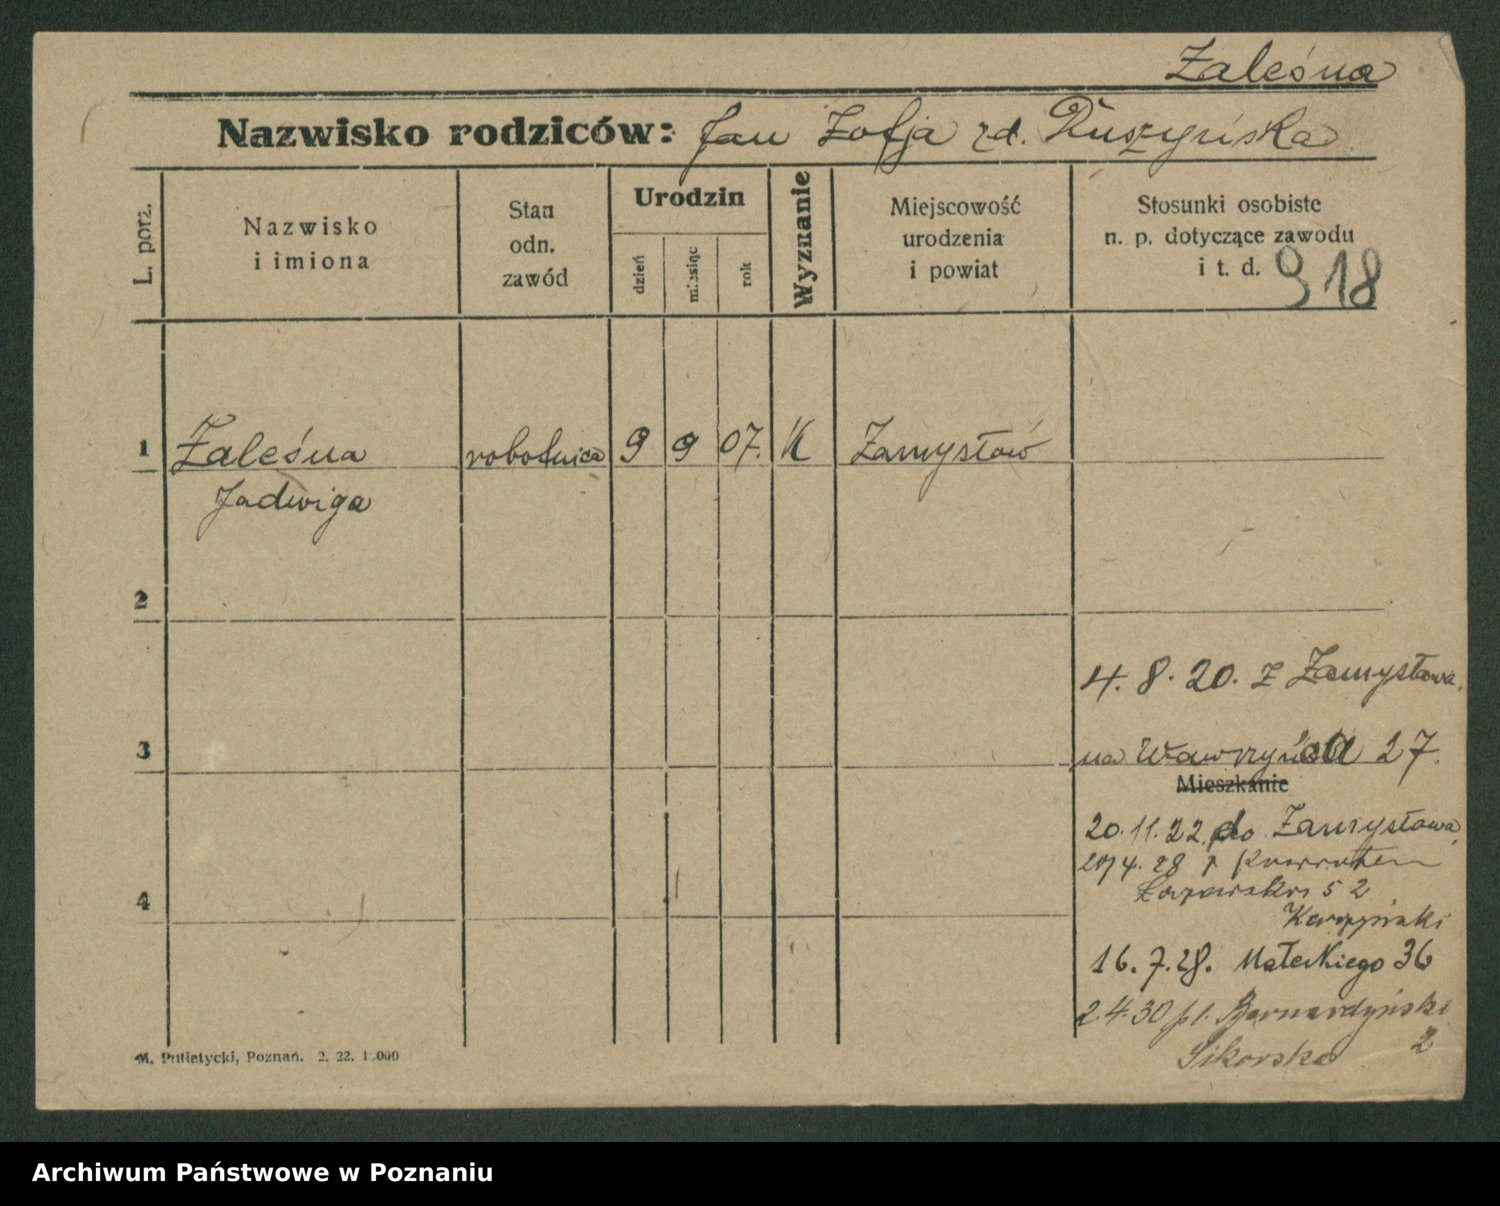 Zaleśna
Nazwisko rodziców: Jan Zofja zd. Ruszyńska
L. porz.
Nazwisko
i imiona
Stan
odn.
zawód
Urodzin
dzień
miesiąc
rok
Wyznanie
Miejscowość
urodzenia
i powiat
Stosunki osobiste
n. p. dotyczące zawodu
i t. d. 918
1 Zaleśna robotnica 9 9 07. K Zamysłów
Jadwiga
2
4. 8. 20. z Zamysłowa.
3 na Wawrzyńca 27.
Mieszkanie
20. 11. 22. do Zamysłowa
20/4. 28
Łazarska 52
4 Karpiński
16. 7. 28. Małeckiego 36
2.4.30 pl. Bernardyński
Sikorska 2
M. Putiatycki, Poznań. 2. 22. 1.000
Archiwum Państwowe w Poznaniu